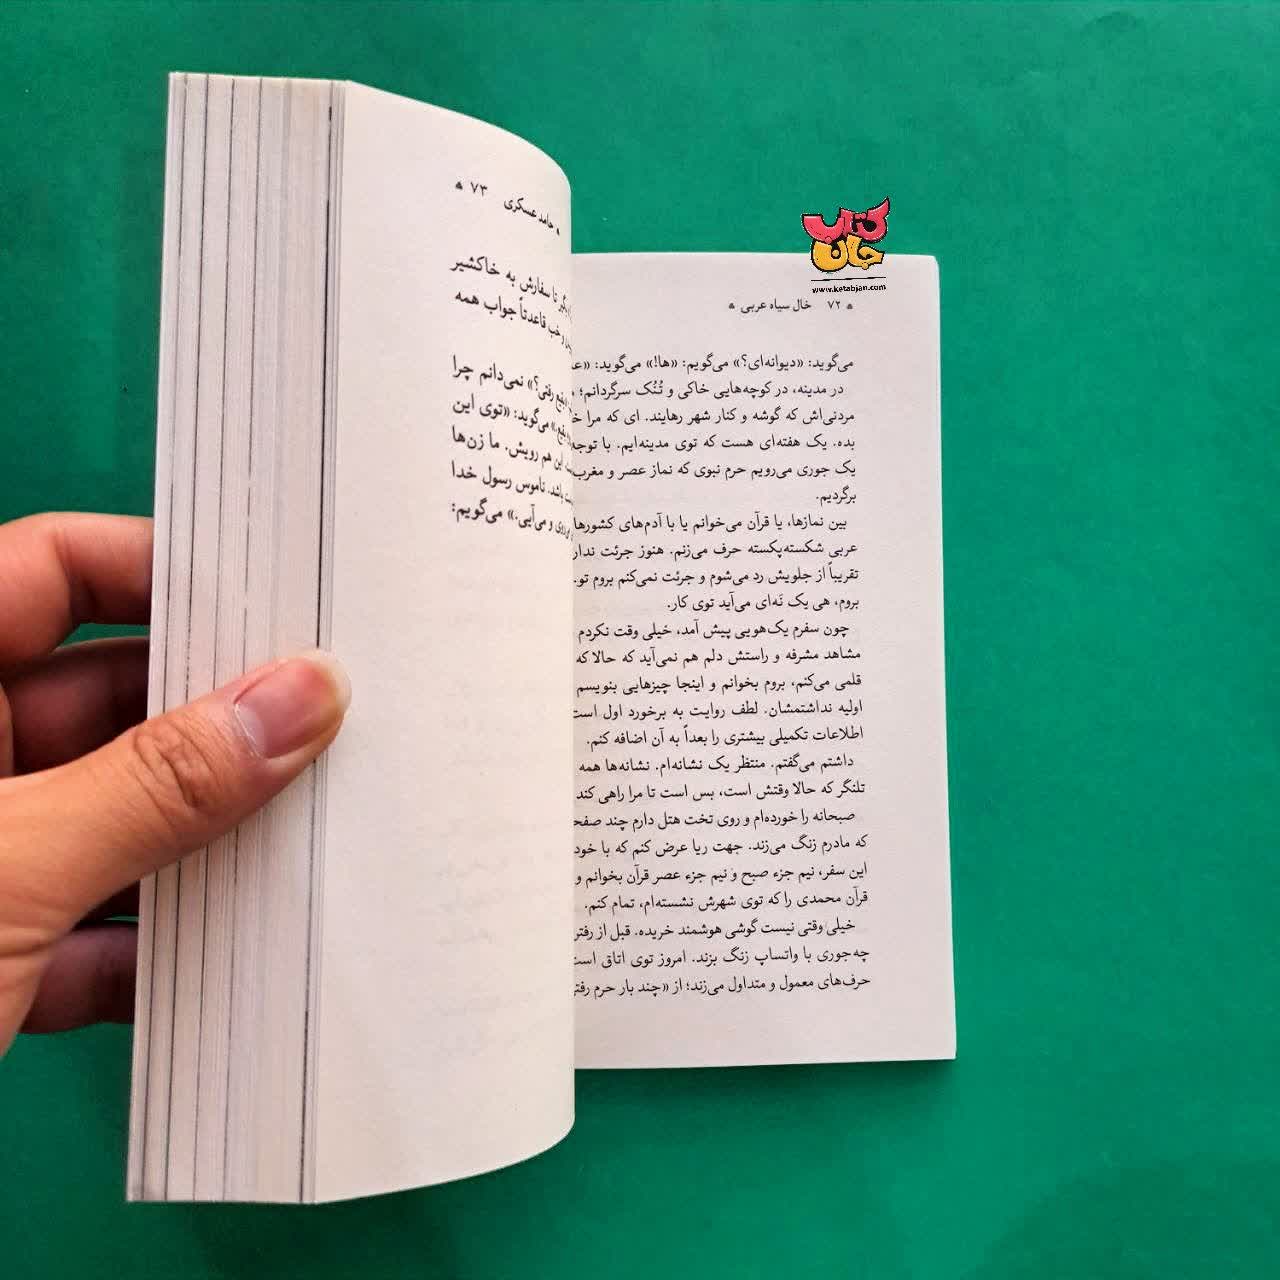 کتاب جان
www.ketabjan.com
۷۲ خال سیاه عربی
می‌گوید: «دیوانه‌ای؟» می‌گویم: «ها!» می‌گوید:
در مدینه، در کوچه‌هایی خاکی و تُنُک سرگردانم؛
مردنی‌اش که گوشه و کنار شهر رهایند. ای که مرا
بده. یک هفته‌ای هست که توی مدینه‌ایم. با توجه
یک جوری می‌رویم حرم نبوی که نماز عصر و مغرب
برگردیم.
بین نمازها، یا قرآن می‌خوانم یا با آدم‌های کشورها
عربی شکسته‌پکسته حرف می‌زنم. هنوز جرئت
تقریباً از جلویش رد می‌شوم و جرئت نمی‌کنم بروم تو.
بروم، هی یک نَه‌ای می‌آید توی کار.
چون سفرم یک‌هویی پیش آمد، خیلی وقت نکردم
مشاهد مشرفه و راستش دلم هم نمی‌آید که حالا که
قلمی می‌کنم، بروم بخوانم و اینجا چیزهایی بنویسم
اولیه نداشتمشان. لطف روایت به برخورد اول است
اطلاعات تکمیلی بیشتری را بعداً به آن اضافه کنم.
داشتم می‌گفتم. منتظر یک نشانه‌ام. نشانه‌ها همه
تلنگر که حالا وقتش است، بس است تا مرا راهی کند
صبحانه را خورده‌ام و روی تخت هتل دارم چند
که مادرم زنگ می‌زند. جهت ریا عرض کنم که با خود
این سفر، نیم جزء صبح و نیم جزء عصر قرآن بخوانم و
قرآن محمدی را که توی شهرش نشسته‌ام، تمام کنم.
خیلی وقتی نیست گوشی هوشمند خریده. قبل از
چه‌جوری با واتساپ زنگ بزند. امروز توی اتاق است
حرف‌های معمول و متداول می‌زند؛ از «چند بار حرم
حامد عسکری ۷۳
تا سفارش به خاکشیر
و خب قاعدتاً جواب همه
رفتی؟» نمی‌دانم چرا
می‌گوید: «توی این
این هم رویش. ما زن‌ها
باشد. ناموس رسول خدا
و می‌آیی.» می‌گویم: